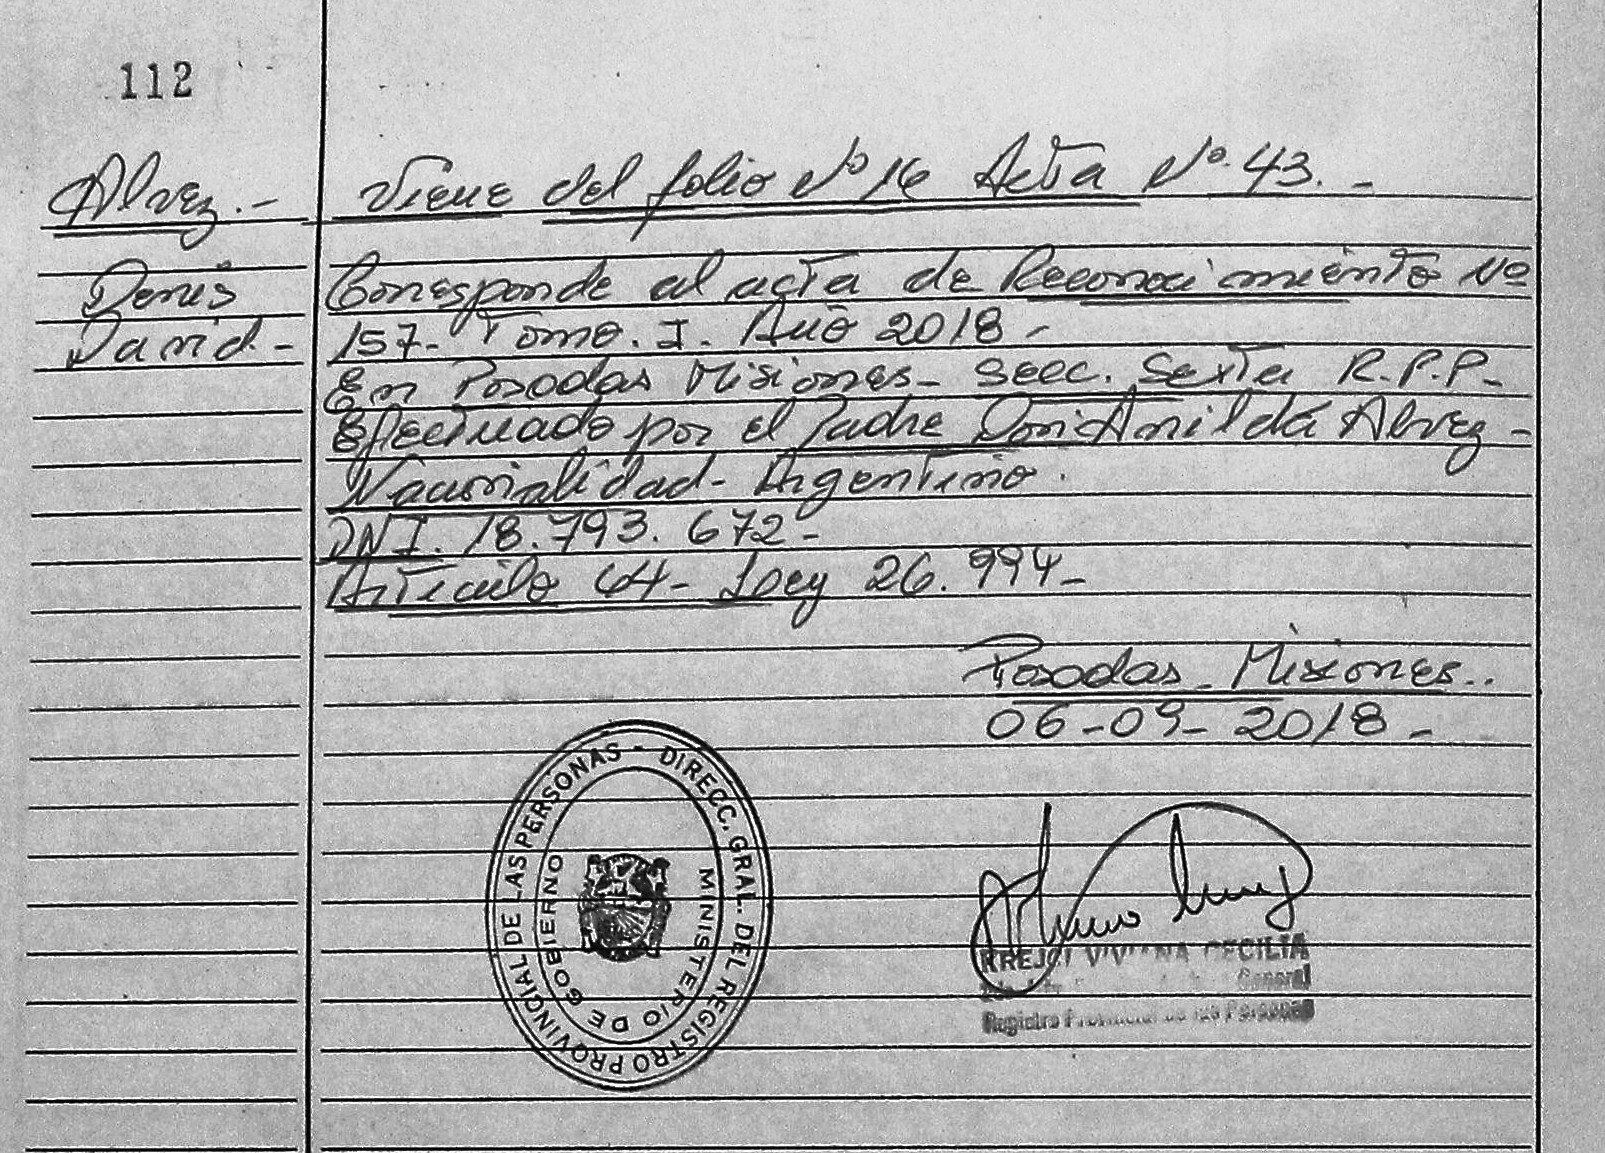 112
Alvez.- Viene del folio Nº 16 Acta Nº 43.-
Denis Corresponde al acta de Reconocimiento Nº
David- 157- Tomo. I. Año 2018-
En Posadas Misiones- Secc. Sexta R.P.P-
Efectuado por el Padre Don Anildo Alvez-
Nacionalidad- Argentino.
DNI. 18.793.672-
Articulo 64- Ley 26.994-
Posadas- Misiones..
06-09-2018-
DIRECC. GRAL. DEL REGISTRO PROVINCIAL DE LAS PERSONAS -
MINISTERIO DE GOBIERNO
KREJCI VIVIANA CECILIA
General
Registro Provincial de las Personas